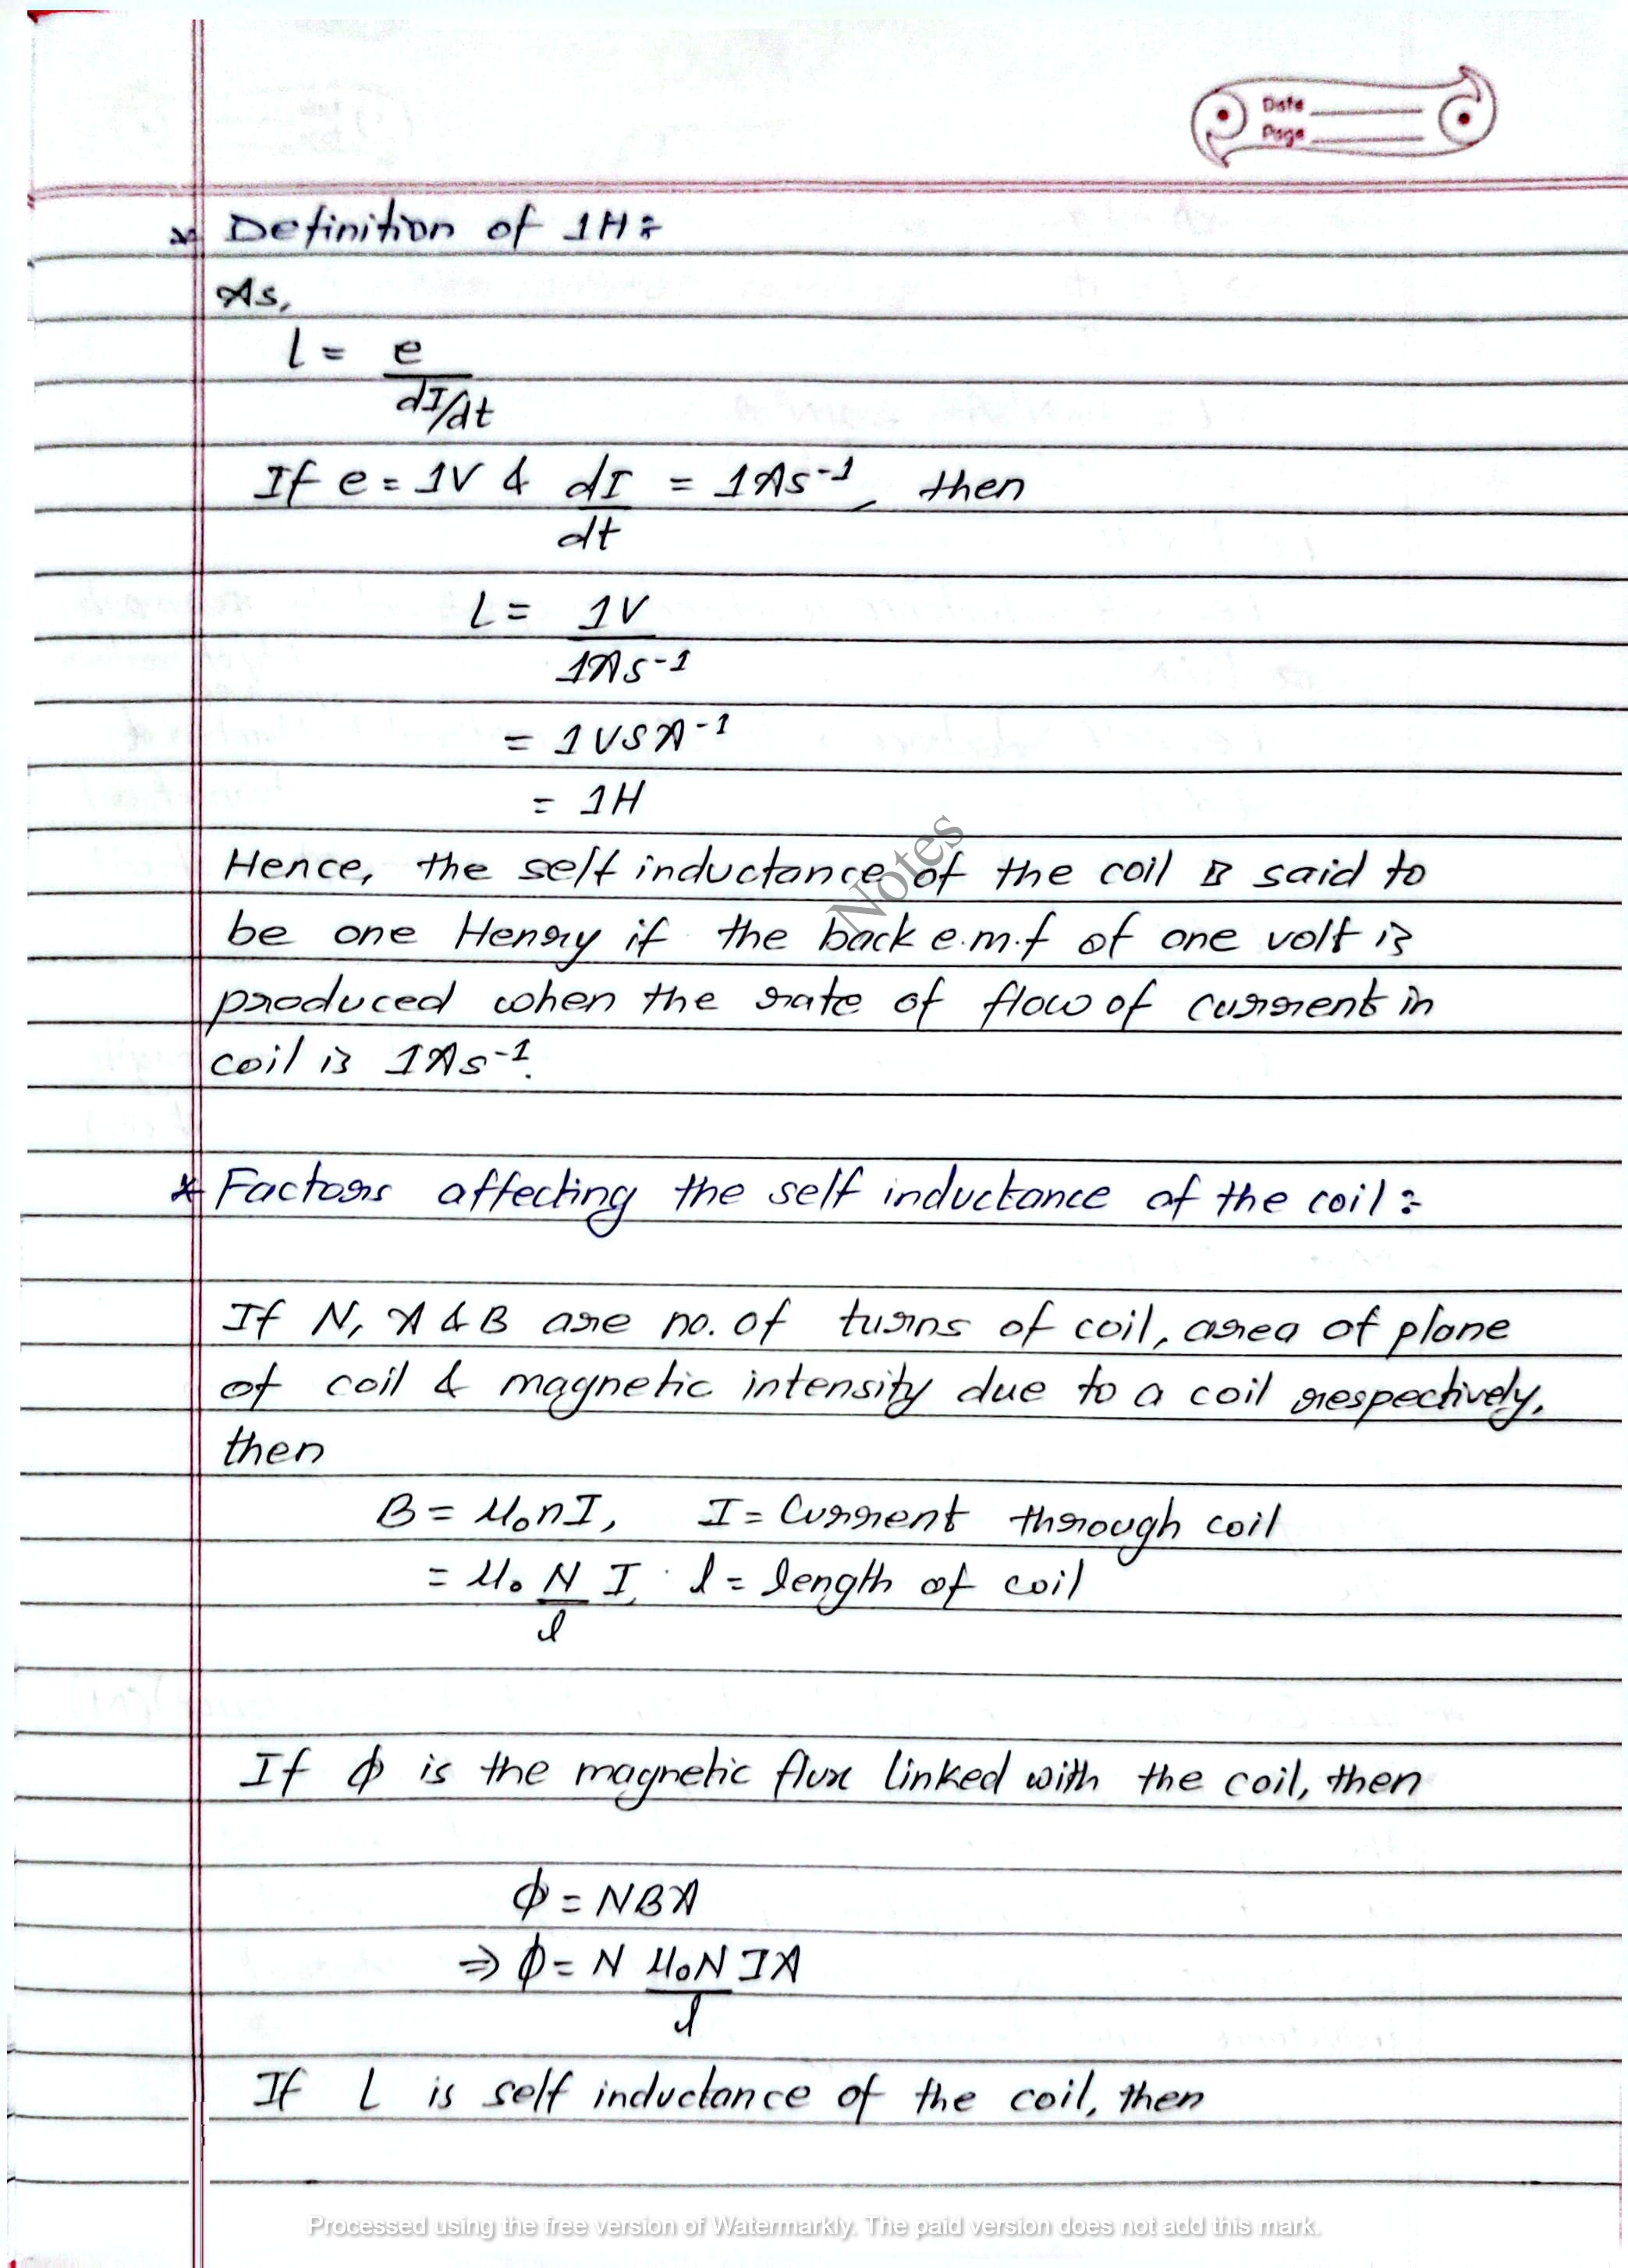 Date
Page
* Definition of 1H:
As,
L = e
dI/dt
If e = 1V & dI = 1As⁻¹, then
dt
L = 1V
1As⁻¹
= 1VSA⁻¹
= 1H
Notes
Hence, the self inductance of the coil is said to
be one Henry if the back e.m.f of one volt is
produced when the rate of flow of current in
coil is 1As⁻¹.
* Factors affecting the self inductance of the coil:
If N, A & B are no. of turns of coil, area of plane
of coil & magnetic intensity due to a coil respectively,
then
B = μ₀nI, I = Current through coil
= μ₀ N I, l = length of coil
l
If ϕ is the magnetic flux linked with the coil, then
ϕ = NBA
⇒ ϕ = N μ₀N IA
l
If L is self inductance of the coil, then
Processed using the free version of Watermarkly. The paid version does not add this mark.